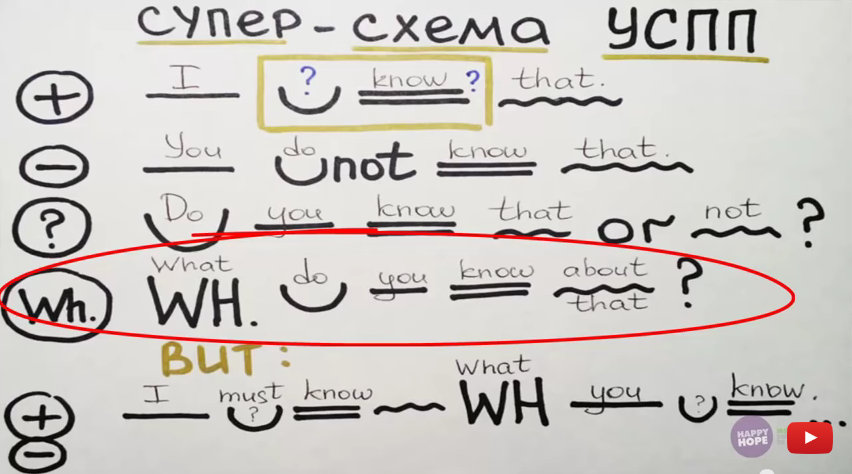 СУПЕР - СХЕМА УСПП
+ I ? know ? that.
− You do not know that.
? Do you know that or not ?
Wh. What WH. do you know about that ?
BUT:
+ − I must ? know What WH you ? know. ...
HAPPY HOPE